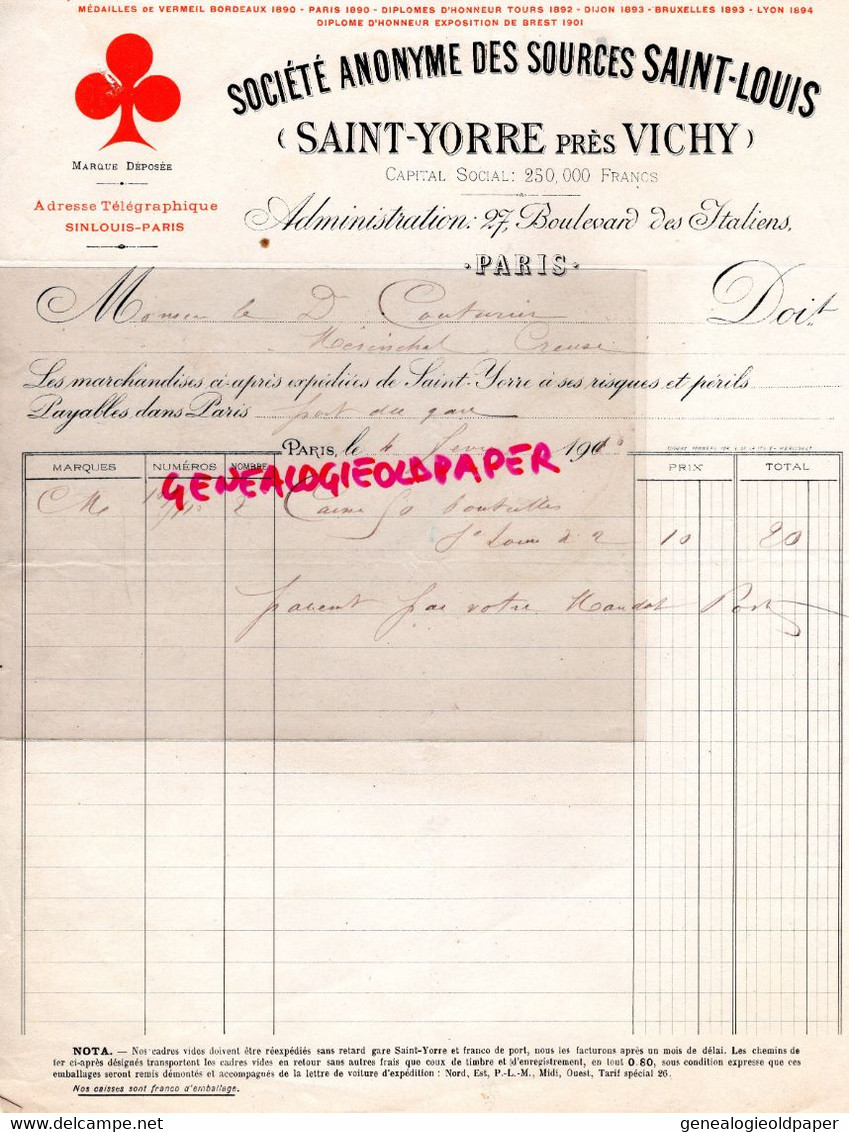 MÉDAILLES DE VERMEIL BORDEAUX 1890 - PARIS 1890 - DIPLOMES D'HONNEUR TOURS 1892 - DIJON 1893 - BRUXELLES 1893 - LYON 1894
DIPLOME D'HONNEUR EXPOSITION DE BREST 1901
SOCIÉTÉ ANONYME DES SOURCES SAINT-LOUIS
(SAINT-YORRE PRÈS VICHY)
MARQUE DÉPOSÉE
CAPITAL SOCIAL: 250,000 FRANCS
Adresse Télégraphique
SINLOUIS-PARIS
Administration: 27, Boulevard des Italiens,
PARIS
Monsieur le Dr Couturier Doit
Creuse
Les marchandises ci-après expédiées de Saint-Yorre à ses risques et périls
Payables dans Paris port dû gare
PARIS, le 190
GENEALOGIEOLDPAPER
MARQUES NUMÉROS NOMBRE PRIX TOTAL
2 Caisses 50 bouteilles
St Louis 10 20
par votre Mandat Poste
NOTA. — Nos cadres vides doivent être réexpédiés sans retard gare Saint-Yorre et franco de port, nous les facturons après un mois de délai. Les chemins de
fer ci-après désignés transportent les cadres vides en retour sans autres frais que coux de timbre et d'enregistrement, en tout 0.80, sous condition expresse que ces
emballages seront remis démontés et accompagnés de la lettre de voiture d'expédition : Nord, Est, P.-L.-M., Midi, Ouest, Tarif spécial 26.
Nos caisses sont franco d'emballage.
genealogieoldpaper